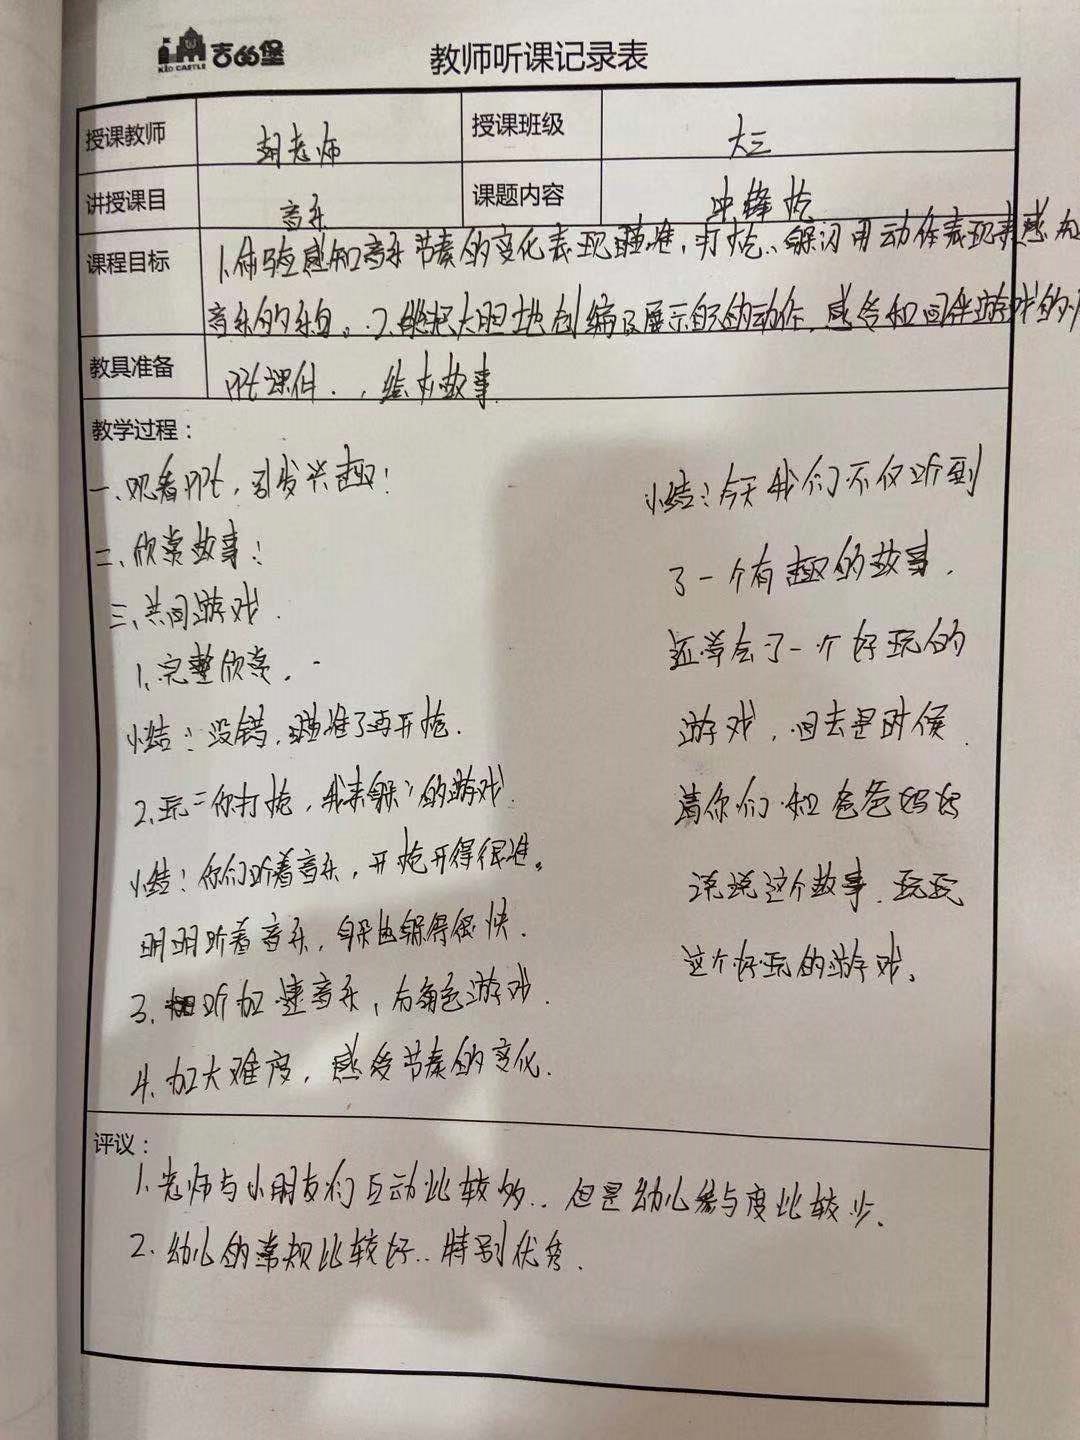 KID CASTLE 吉的堡
教师听课记录表
授课教师 胡老师 授课班级 大三
讲授课目 音乐 课题内容 冲锋枪
课程目标 1.体验感知音乐节奏的变化表现瞄准,打枪、躲闪用动作表现来感知
音乐的乐句。2.能大胆地创编及展示自己的动作,感受和同伴游戏的
教具准备 PPt课件.,绘本故事.
教学过程:
一、观看PPt,引发兴趣!
二、欣赏故事!
三、共同游戏.
1、完整欣赏.
小结:没错,瞄准了再开枪.
2、玩"你打枪,我来躲"的游戏.
小结!你们听着音乐,开枪开得很准。
明明听着音乐,躲也躲得很快.
3、听加速音乐,分角色游戏.
4.加大难度,感受节奏的变化.
小结:今天我们不仅听到
了一个有趣的故事.
还学会了一个好玩的
游戏,回去是时候.
请你们和爸爸妈妈
说说这个故事.玩玩
这个好玩的游戏。
评议:
1.老师与小朋友们互动比较多..但是幼儿参与度比较少.
2.幼儿的常规比较好..特别优秀.